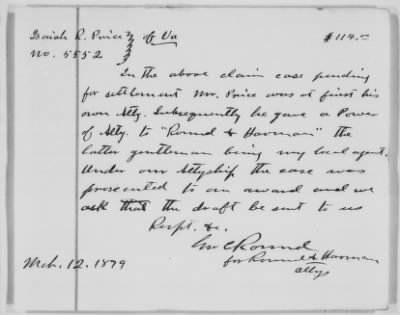 Isaiah R. Price } of Va $114.00
No. 5552
In the above claim case pending
for settlement Mr. Price was at first his
own Atty. Subsequently he gave a Power
of Atty. to "Round & Harman" the
latter gentleman being my local agent.
Under our Attyship the case was
prosecuted to an award and we
ask that the draft be sent to us
Respt. &c.
Geo C Round
for Round & Harman
attys
Mch. 12. 1879